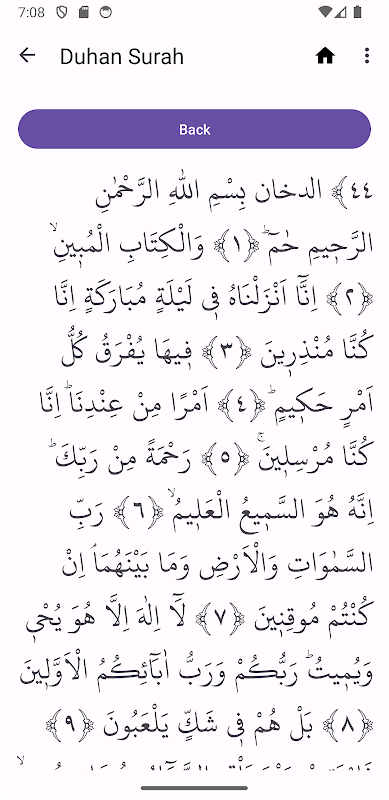 7:08
Duhan Surah
Back
٤٤﴾ الدخان بِسْمِ اللّٰهِ الرَّحْمٰنِ
الرَّحٖيمِ حٰمٓ ۛ ﴿١﴾ وَالْكِتَابِ الْمُبٖينِۙ
﴿٢﴾ اِنَّٓا اَنْزَلْنَاهُ فٖى لَيْلَةٍ مُبَارَكَةٍ اِنَّا
كُنَّا مُنْذِرٖينَ ﴿٣﴾ فٖيهَا يُفْرَقُ كُلُّ
اَمْرٍ حَكٖيمٍۜ ﴿٤﴾ اَمْرًا مِنْ عِنْدِنَاۜ اِنَّا
كُنَّا مُرْسِلٖينَۚ ﴿٥﴾ رَحْمَةً مِنْ رَبِّكَۜ
اِنَّهُ هُوَ السَّمٖيعُ الْعَلٖيمُۙ ﴿٦﴾ رَبِّ
السَّمٰوَاتِ وَالْاَرْضِ وَمَا بَيْنَهُمَاۘ اِنْ
كُنْتُمْ مُوقِنٖينَ ﴿٧﴾ لَٓا اِلٰهَ اِلَّا هُوَ يُحْيٖ
وَيُمٖيتُۜ رَبُّكُمْ وَرَبُّ اٰبَٓائِكُمُ الْاَوَّلٖينَ
﴿٨﴾ بَلْ هُمْ فٖى شَكٍّ يَلْعَبُونَ ﴿٩﴾